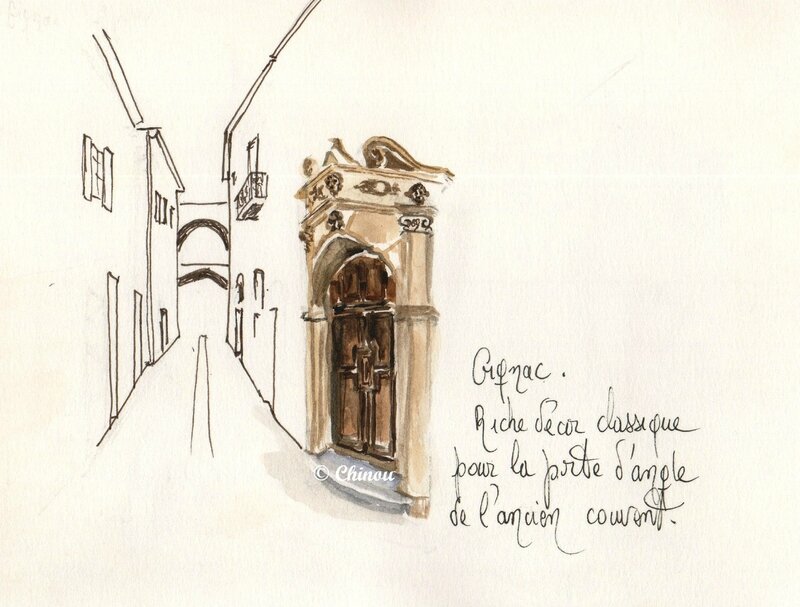 © Chinou
Gignac.
Riche décor classique
pour la porte d'angle
de l'ancien couvent.